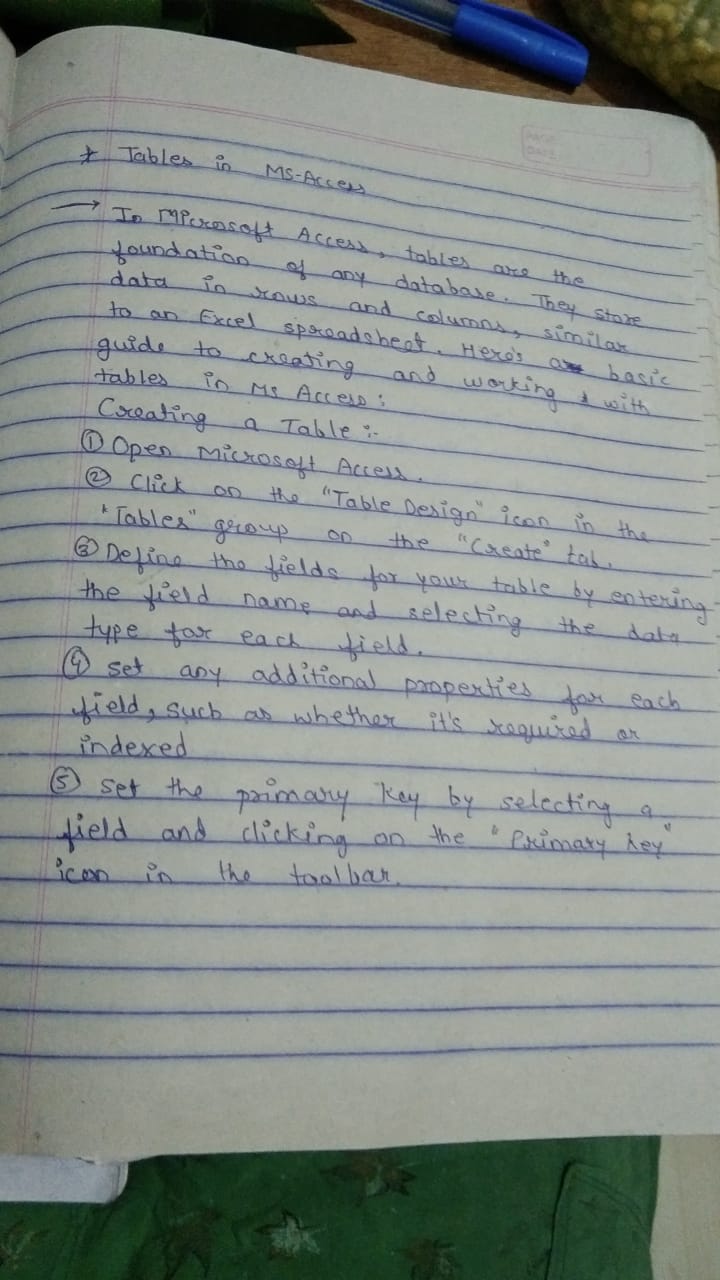 PAGE
DATE
* Tables in MS-Access
→ In Microsoft Access, tables are the
foundation of any database. They store
data in rows and columns, similar
to an Excel spreadsheet. Here's a basic
guide to creating and working with
tables in Ms Access:
Creating a Table :-
① Open Microsoft Access.
② Click on the "Table Design" icon in the
"Tables" group on the "Create" tab.
③ Define the fields for your table by entering
the field name and selecting the data
type for each field.
④ set any additional properties for each
field, such as whether it's required or
indexed
⑤ set the primary key by selecting a
field and clicking on the "Primary key"
icon in the toolbar.